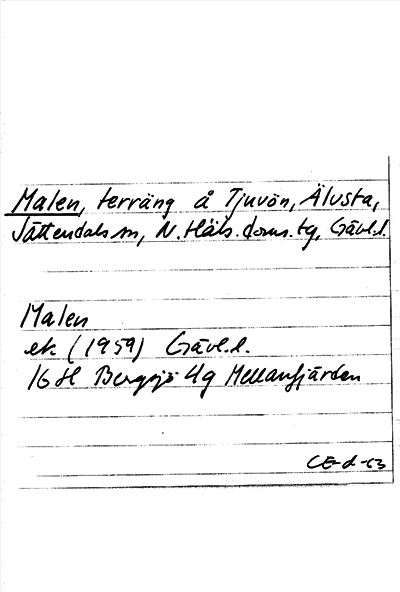 Malen, terräng å Tjuvön, Älvsta,
Jättendals sn, N. Häls. doms. tg, Gävl.l.
Malen
ek (1959) Gävl.l.
16 H Bergsjö 4g Mellanfjärden